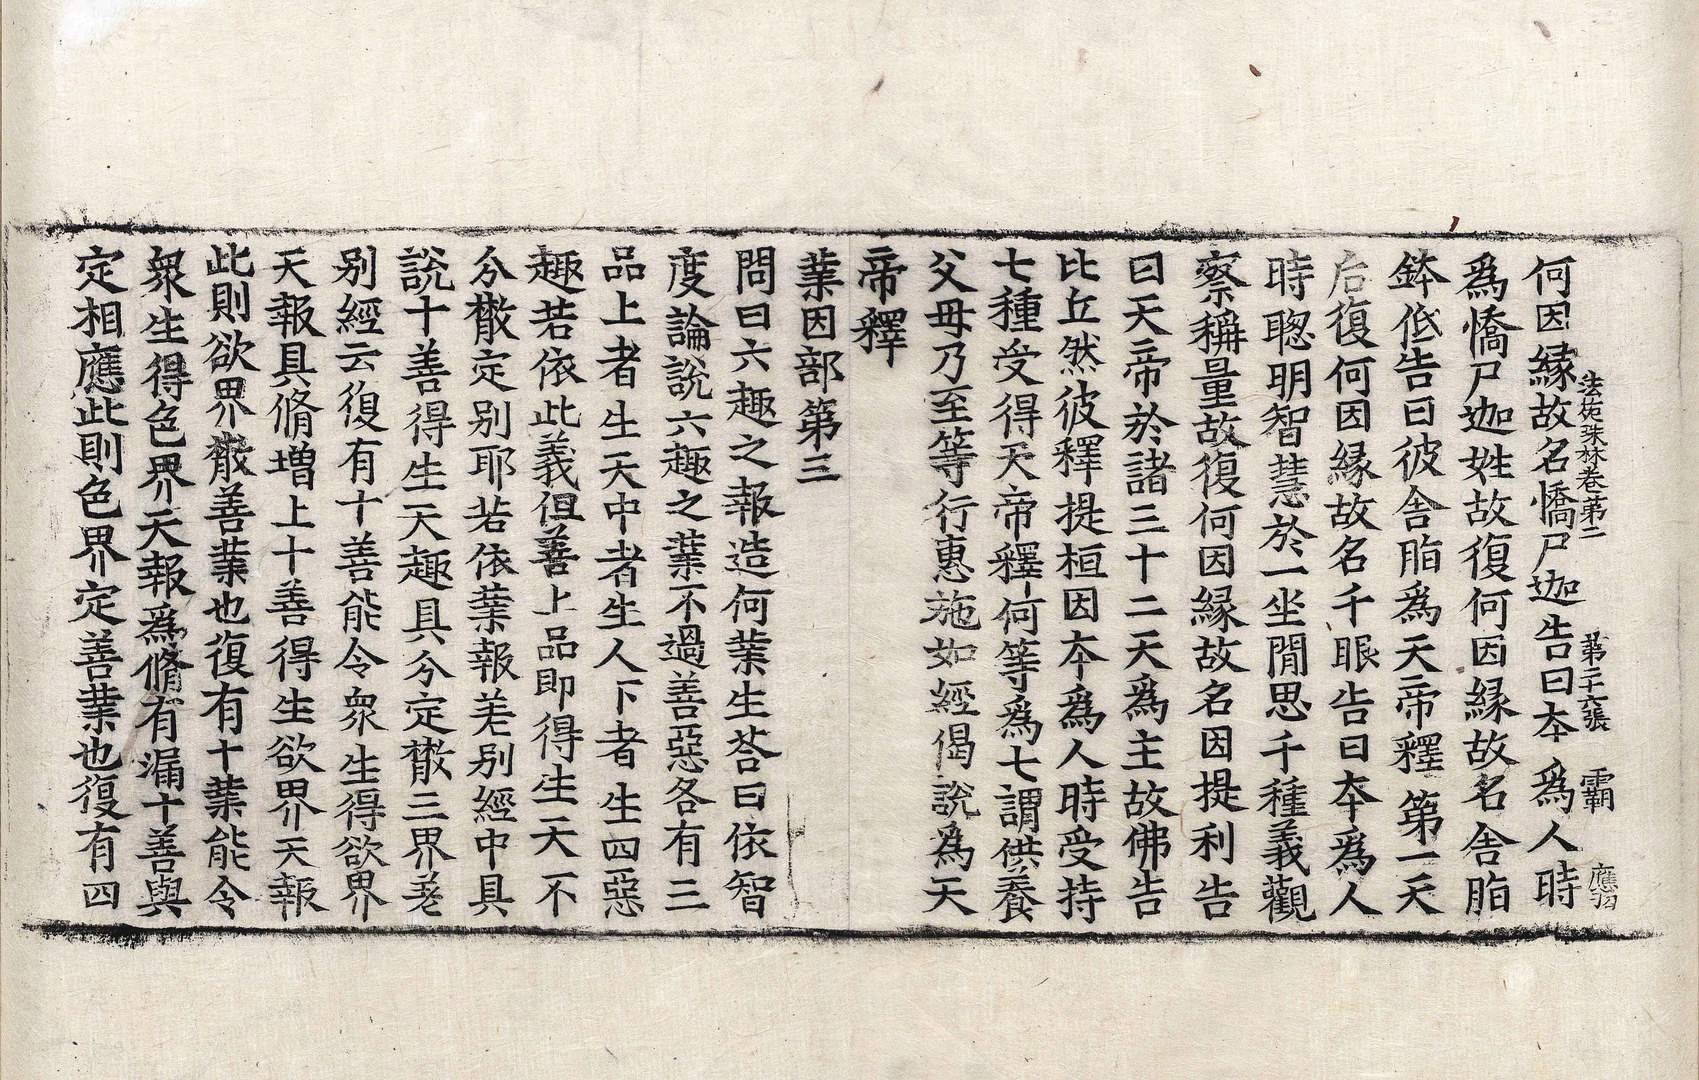 法苑珠林卷第二 第二十六張 霸
何因緣故名憍尸迦告曰本爲人時
爲憍尸迦姓故復何因緣故名舍脂
鉢低告曰彼舍脂爲天帝釋第一天
后復何因緣故名千眼告曰本爲人
時聦明智慧於一坐閒思千種義觀
察稱量故復何因緣故名因提利告
曰天帝於諸三十二天爲主故佛告
比丘然彼釋提桓因本爲人時受持
七種受得天帝釋何等爲七謂供養
父母乃至等行惠施如經偈說爲天
帝釋
業因部第三
問曰六趣之報造何業生荅曰依智
度論說六趣之業不過善惡各有三
品上者生天中者生人下者生四惡
趣若依此義但善上品即得生天不
分散定別耶若依業報差別經中具
說十善得生天趣具分定散三界差
別經云復有十善能令衆生得欲界
天報具脩增上十善得生欲界天報
此則欲界散善業也復有十業能令
衆生得色界天報爲脩有漏十善與
定相應此則色界定善業也復有四